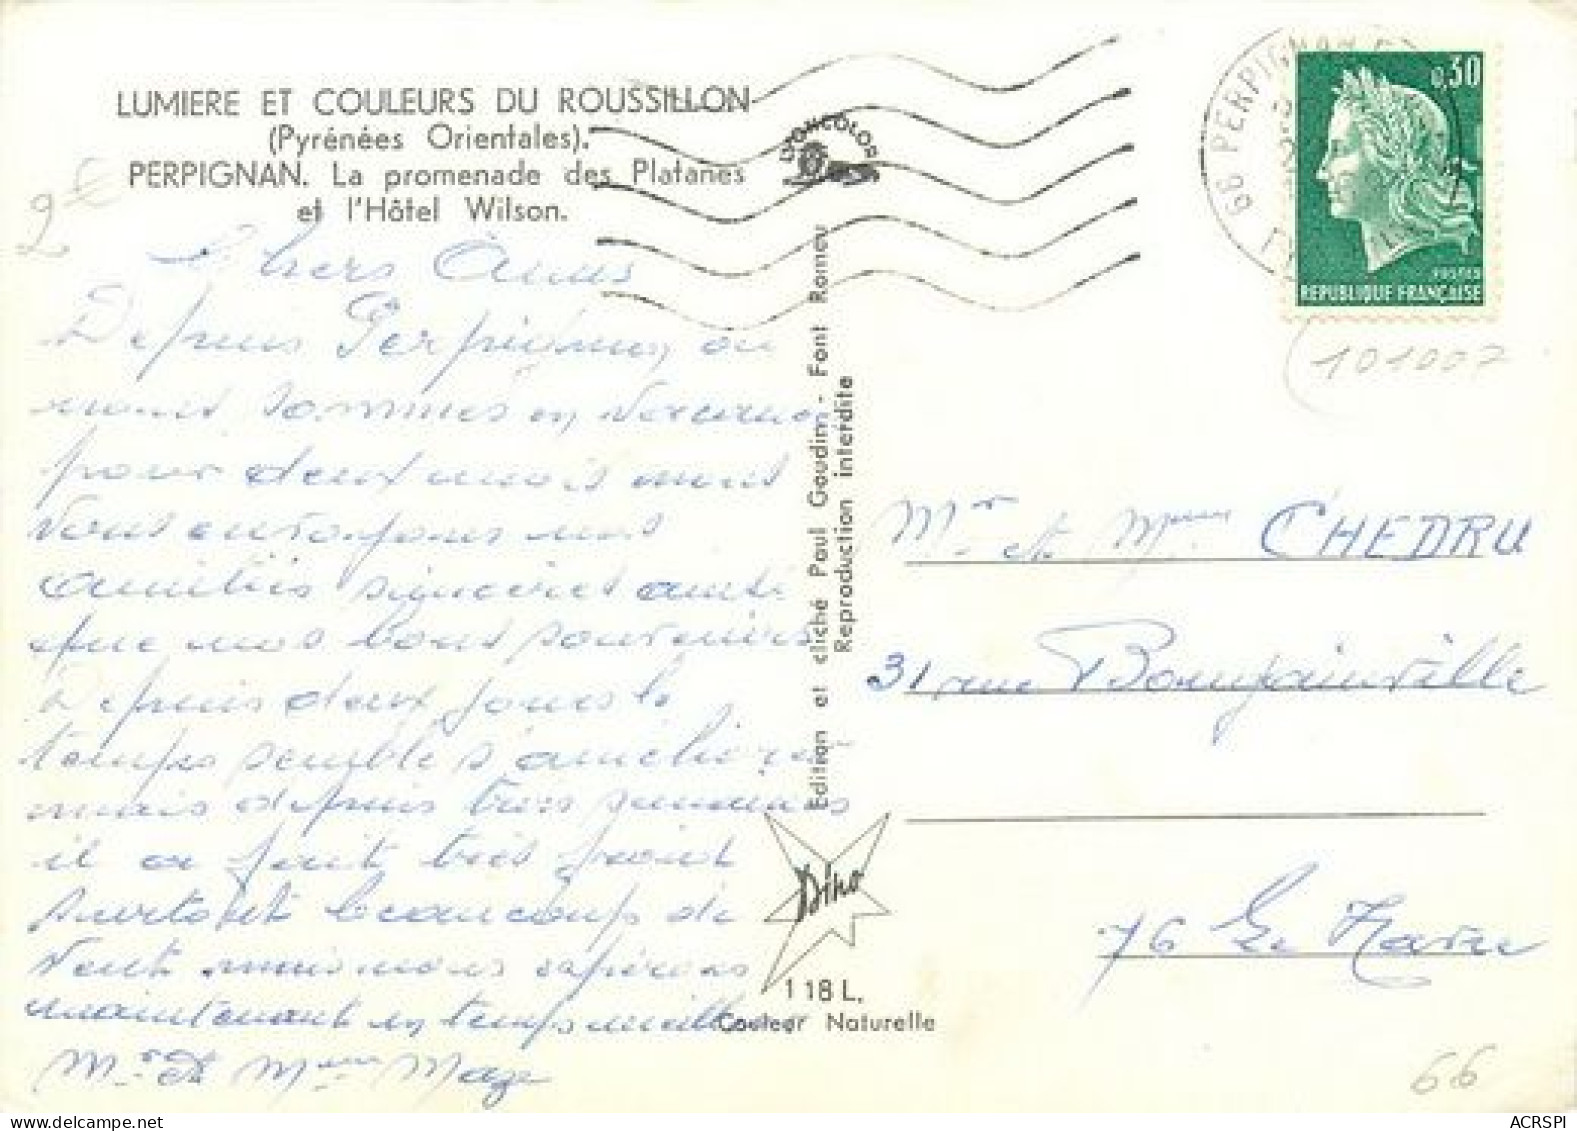 LUMIERE ET COULEURS DU ROUSSILLON
(Pyrénées Orientales).
PERPIGNAN. La promenade des Platanes
et l'Hôtel Wilson.
2€
Chers Amis
Depuis Perpignan, ou
nous sommes en
pour deux mois nous
vous envoyons nos
amitiés sincères ainsi
que nos bons souvenirs
Depuis deux jours le
temps semble s'améliorer
mais depuis trois semaines
il a fait très froid
surtout beaucoup de
vent mais nous espérons
maintenant en temps meilleur
Mr et Mme
LYONCOLOR
Edition et cliché Paul Goudim - Font Romeu
Reproduction interdite
Dino
118 L.
Couleur Naturelle
66 PERPIGNAN
0,30
POSTES
REPUBLIQUE FRANÇAISE
101007
Mr et Mme CHEDRU
31 rue Bougainville
76 Le Havre
66
ACRSPI